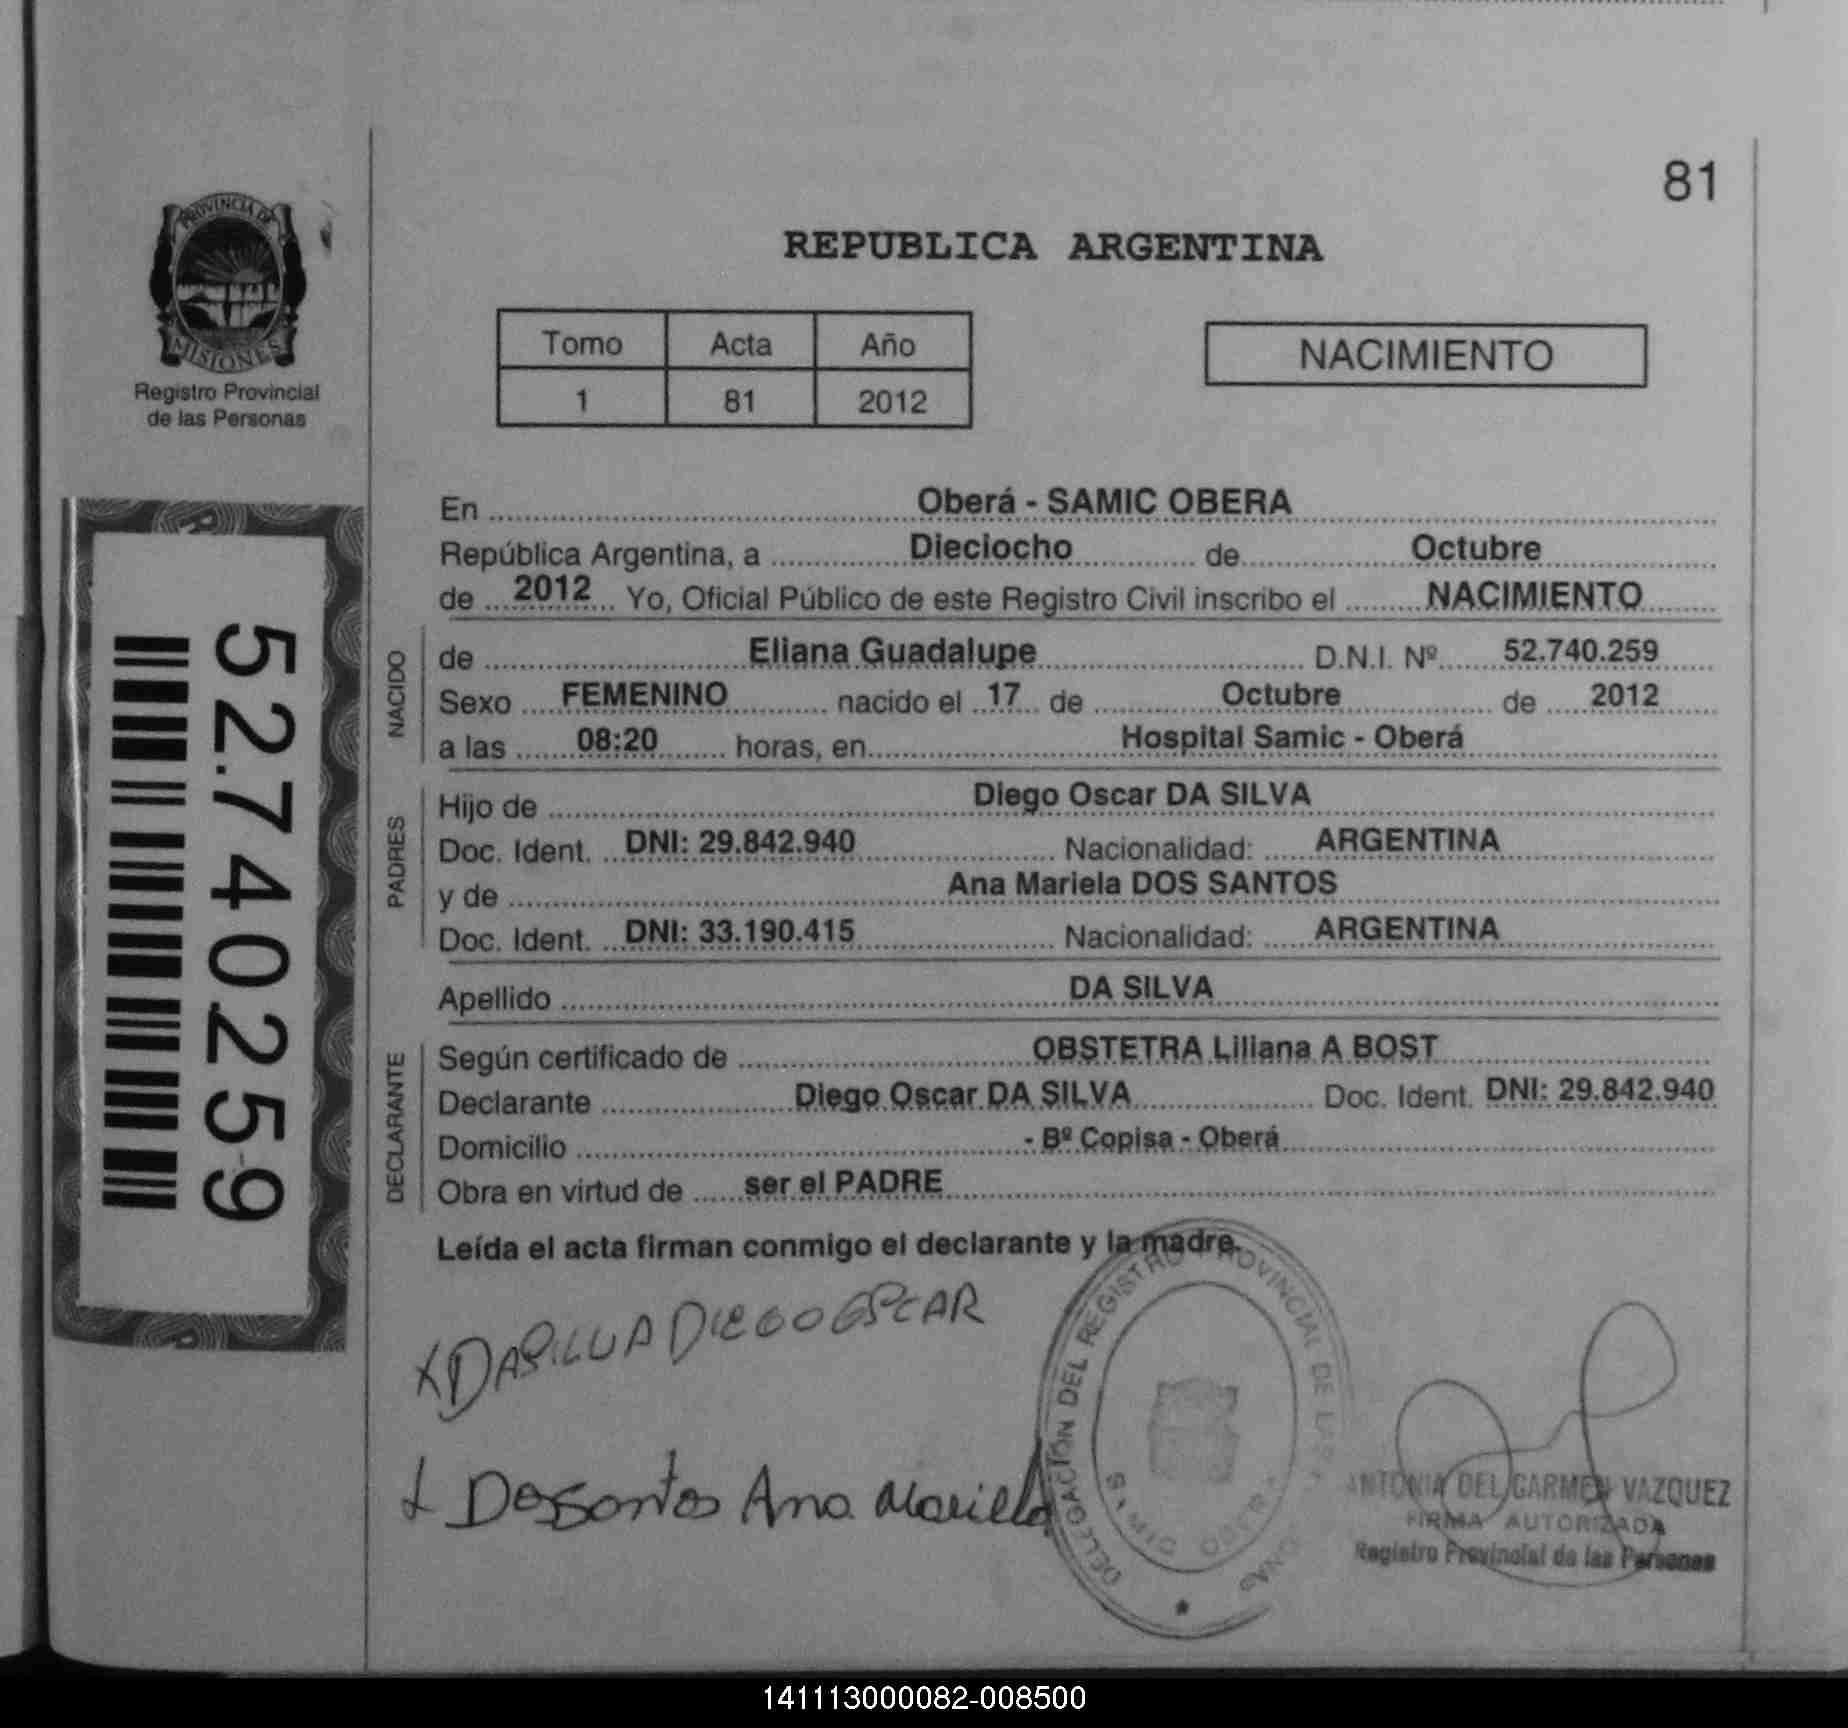 81
PROVINCIA DE
MISIONES
Registro Provincial
de las Personas
REPUBLICA ARGENTINA
Tomo Acta Año
1 81 2012
NACIMIENTO
52.740.259
En Oberá - SAMIC OBERA
República Argentina, a Dieciocho de Octubre
de 2012 Yo, Oficial Público de este Registro Civil inscribo el NACIMIENTO
NACIDO
de Eliana Guadalupe D.N.I. Nº 52.740.259
Sexo FEMENINO nacido el 17 de Octubre de 2012
a las 08:20 horas, en Hospital Samic - Oberá
PADRES
Hijo de Diego Oscar DA SILVA
Doc. Ident. DNI: 29.842.940 Nacionalidad: ARGENTINA
y de Ana Mariela DOS SANTOS
Doc. Ident. DNI: 33.190.415 Nacionalidad: ARGENTINA
Apellido DA SILVA
DECLARANTE
Según certificado de OBSTETRA Liliana A BOST
Declarante Diego Oscar DA SILVA Doc. Ident. DNI: 29.842.940
Domicilio - Bº Copisa - Oberá
Obra en virtud de ser el PADRE
Leída el acta firman conmigo el declarante y la madre.
X DASILVA DIEGO OSCAR
X Dossantos Ana Mariela
DELEGACIÓN DEL REGISTRO PROVINCIAL DE LAS
ANTONIA DEL CARMEN VAZQUEZ
FIRMA AUTORIZADA
Registro Provincial de las Personas
141113000082-008500